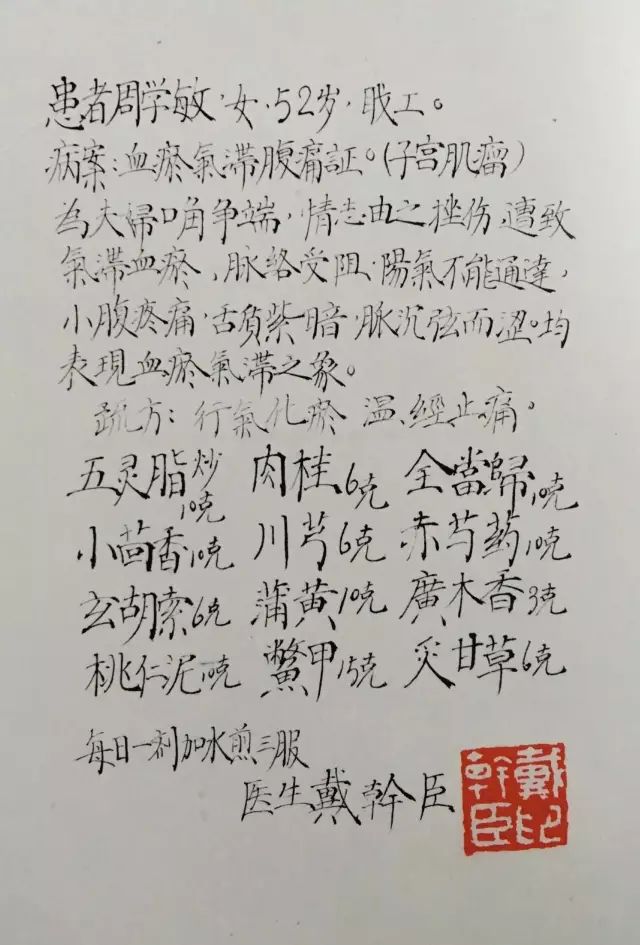 患者周学敏，女，52岁，职工。
病案：血瘀氣滞腹痛証。（子宫肌瘤）
為夫婦口角争端，情志由之挫伤，遭致
氣滞血瘀，脉络受阻，陽氣不能通達，
小腹疼痛，舌質紫暗，脉沉弦而涩。均
表現血瘀氣滞之象。
疏方：行氣化瘀 温經止痛。
五灵脂炒10克 肉桂6克 全當歸10克
小茴香10克 川芎6克 赤芍药10克
玄胡索6克 蒲黄10克 廣木香3克
桃仁泥10克 鱉甲15克 炙甘草6克
每日一剂加水煎三服
医生戴幹臣
戴幹臣印